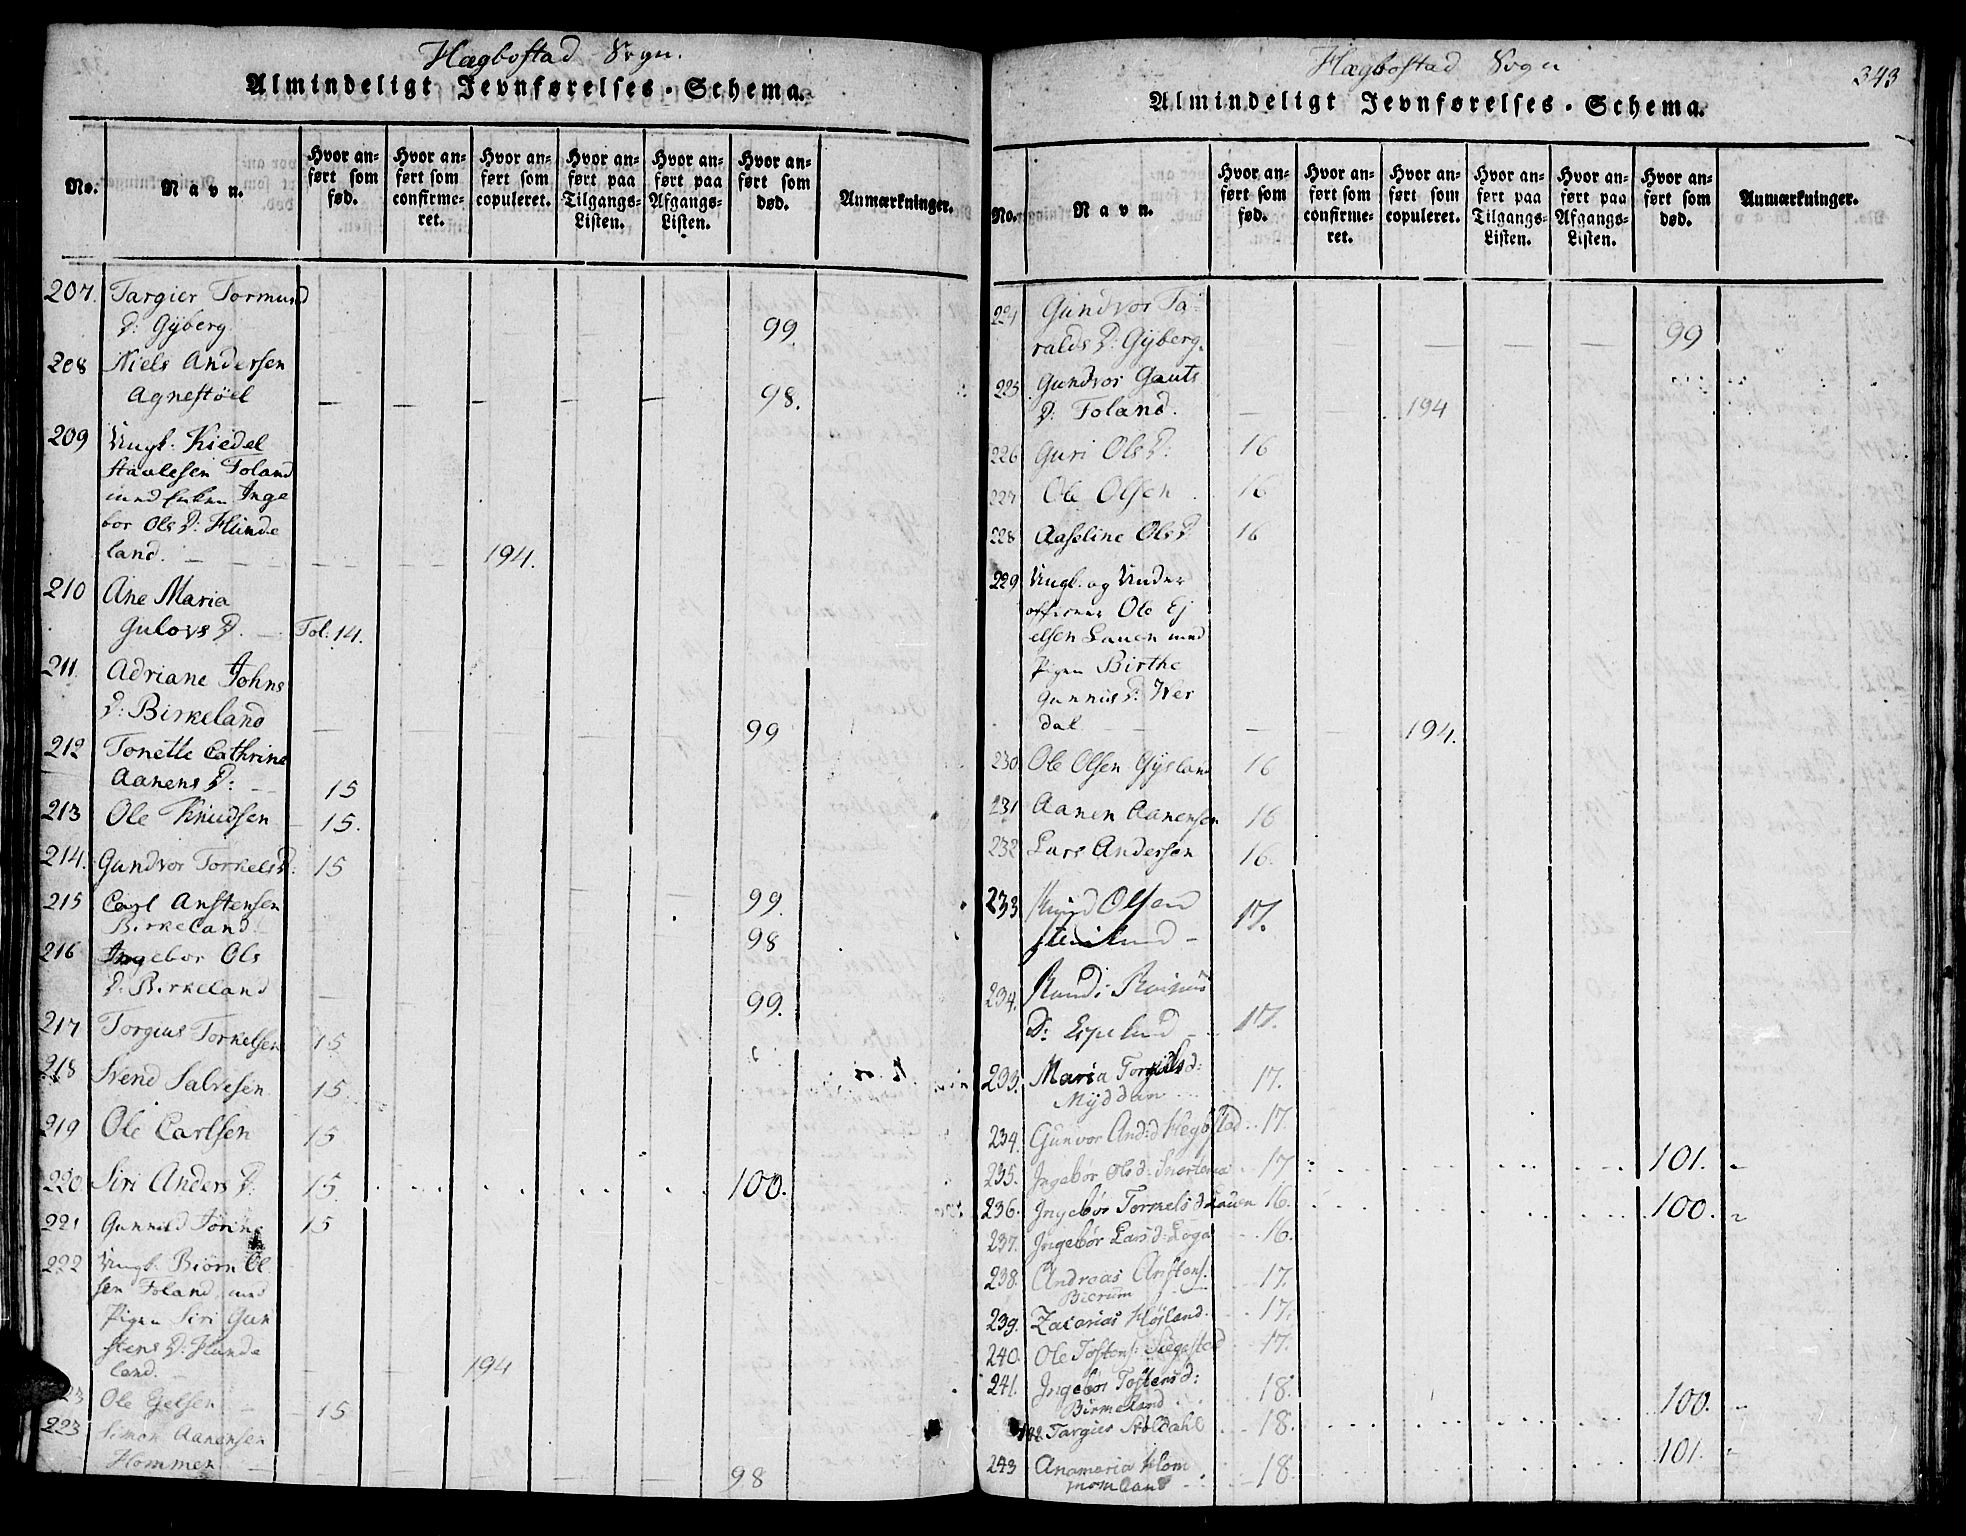 Hægbostad Sogn.
Almindeligt Jevnførelses-Schema.
No.
Navn.
Hvor anført som fød.
Hvor anført som confirmeret.
Hvor anført som copuleret.
Hvor anført paa Tilgangs-Listen.
Hvor anført paa Afgangs-Listen.
Hvor anført som død.
Anmærkninger.
207. Targier Tormund
D: Gÿberg 99.
208 Niels Andersen
Agnestöel — — — — — 98.
209 Ungk: Kiedel
Staalesen Foland
med Enken Inge
bor Ols D: Hunde
land. — 194.
210 Ane Maria
Gulovs D. — Fol: 14.
211 Adriane Johns
D: Birkeland 99
212 Tonette Cathrine
Aanens D: — 15
213 Ole Knudsen 15.
214. Gundvor Torkels D. 15
215 Carl Anstensen 99.
Birkeland 98
216 Ingebor Ols
D: Birkeland 99.
217 Torgius Torkelsen 15
218 Svend Salvesen 15
219 Ole Carlsen 15
220 Siri Anders D: 15. 100.
221 Gunnild Jörine 15
222 Ungk: Biörn Ol
sen Foland med
Pigen Siri Gun
stens D: Hunde
land. 194
Ole Ejelsen — 15
223 Simon Aanensen
Hommen 98
Hægbostad Sogn
343
Almindeligt Jevnførelses-Schema.
No.
Navn.
Hvor anført som fød.
Hvor anført som confirmeret.
Hvor anført som copuleret.
Hvor anført paa Tilgangs-Listen.
Hvor anført paa Afgangs-Listen.
Hvor anført som død.
Anmærkninger.
224 Gundvor Ta-
ralds D: Gÿberg. 99
225 Gundvor Gauts
D: Foland. 194
226 Guri Ols D: 16
227 Ole Olsen 16
228 Aaseline Ols D 16
229 Ungk: og Under
officeer Ole Ej
elsen Lauen med
Pigen Birthe
Gunnus D:
dal 194.
230 Ole Olsen Gÿsland 16
231 Aanen Aanensen 16
232 Lars Andersen 16.
233 Knud Olsen 17.
234.
D: Espelund — 17.
233. Maria Torgiusd: 17.
Mÿddan
234. Gunvor And:d Hegbstad 17.
235. Ingebör Olsd: 17 101.
236. Ingebör Tormelsd Lauen 16. 100.
237. Ingebör Larsd: Loga 16.
238. Andreas Anstens. 17.
Bierum
239. Zacarias Höjland. 17.
240. Ole Tostens: 17.
241. Ingebör Tostensd: 18. 100.
Birmeland
Targies Stöldahl 18. 101.
243 Anamaria Hom 18
momland